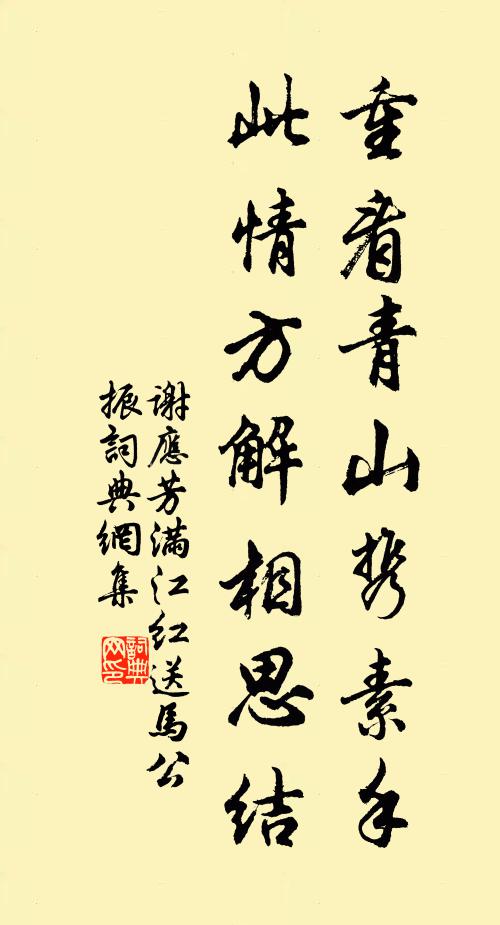 重看青山携素手
此情方解相思结
謝應芳满江红送馬公
振詞典網集
詞典
网印